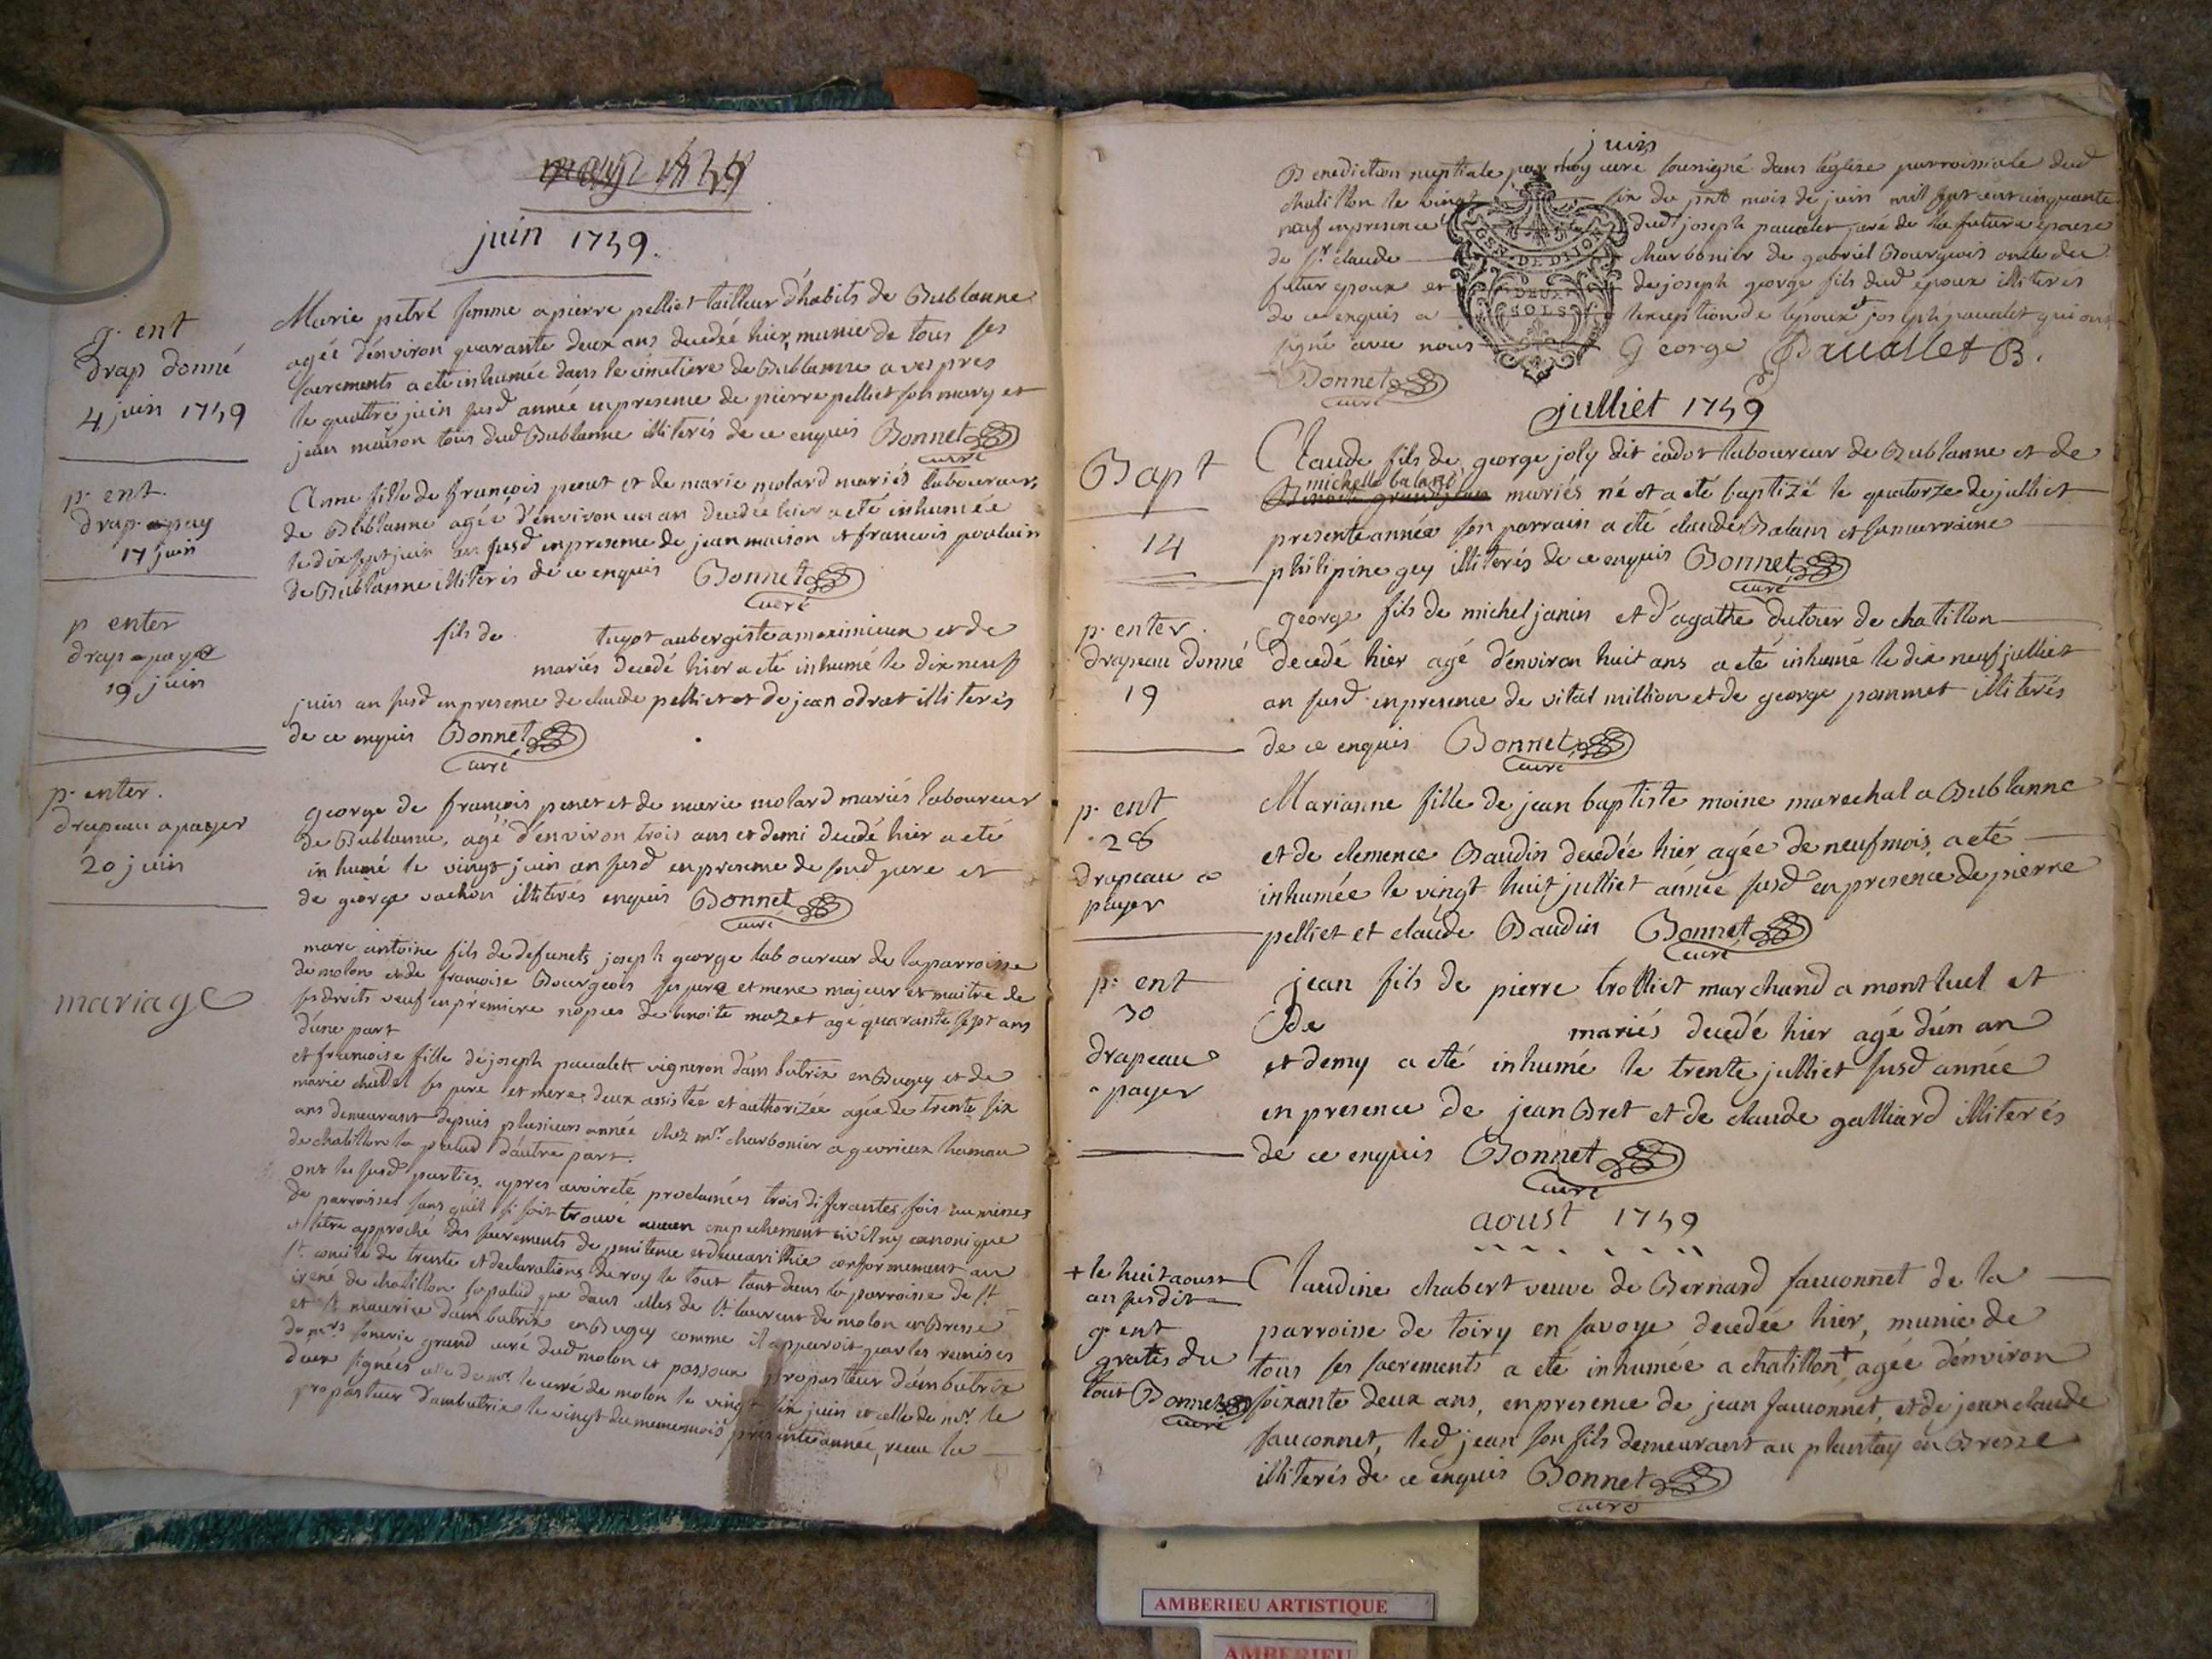 juin 1759.
g. ent
drap donné
4 juin 1759
Marie petré femme a pierre pelliet tailleur d'habits de Bublanne
agée d'environ quarante deux ans decedée hier, munie de tous ses
sacrements a eté inhumée dans le cimetiere de Bublanne a vespres
le quattre juin susd année en presence de pierre pelliet son mary et
jean maison tous dud Bublanne illiterés de ce enquis Bonnet
curé
p. ent.
drap a pay
17 juin
Anne fille de françois et de marie molard mariés laboureur
de Bublanne agée d'environ un an decedée hier a eté inhumée
le dix sept juin an susd en presence de jean maison et francois poulain
de Bublanne illiterés de ce enquis Bonnet
curé
p enter
drap a paye
19 juin
fils de tugot aubergiste a meximieux et de
mariés decedé hier a eté inhumé le dix neuf
juin an susd en presence de claude pelliet et de jean odret illiterés
de ce enquis Bonnet
curé
p. enter.
drapeau a payer
20 juin
george de françois et de marie molard mariés laboureur
de Bublanne, agé d'environ trois ans et demi decedé hier a eté
inhumé le vingt juin an susd en presence de sond pere et
de george vachon illiterés enquis Bonnet
curé
mariage
marc antoine fils de defunets joseph george laboureur de la parroisse
de molon et de francoise Bourgeois ses pere et mere majeur et maitre de
ses droits veuf en premiere nopces de benoite mozet agé quarante sept ans
d'une part
et francoise fille de joseph pauvalet vigneron d'ambutrix en Bugey et de
marie chatel ses pere et mere, deux assistée et authorizée agée de trente six
ans demeurant depuis plusieurs année chez mr. charbonier a gevrieux hameau
de chatillon la palud d'autre part.
ont les susd parties, apres avoir eté proclamées trois differantes fois aux
de parroisses sans quil si soit trouvé aucun empechement civil ny canonique
et s'etre approché des sacrements de penitence et d'eucaristhie conformement au
st. concile de trente et declarations du roy le tout tant dans la parroisse de st.
irené de chatillon la palud que dans celles de st. laurent de molon en Bresse
et st maurice d'ambutrix en Bugey comme il apparoit par les remises
de mrs grand curé dud molon et possoux propasteur d'ambutrix
deux signées celle de mr. le curé de molon le vingt six juin et celle de mr. le
propasteur d'ambutrix le vingt du meme mois presente année, recue la
juin
Benediction nuptiale par moy curé soussigné dans l'église parroissiale dud
chatillon le vingt six du pnt mois de juin mil sept cent cinquante
neuf en presence dudt joseph pauvalet peré de la future epouse
de sr. claude charbonier de gabriel Bourgeois oncle du
futur epoux et de joseph george fils dud epoux illiterés
de ce enquis a l'exception de l'epoux et joseph pauvalet qui ont
signé avec nous George Pauvallet B.
Bonnet
curé
GEN. DE DIJON
DEUX
SOLS
julliet 1759
Bapt
14
Claude fils de george joly dit codot laboureur de Bublanne et de
michelle baland
mariés né et a eté baptizé le quatorze de julliet
presente année son parrain a eté claude Balam et sa marraine
philipine gey illiterés de ce enquis Bonnet
curé
p. enter.
drapeau donné
19
george fils de michel janin et d'agathe dutour de chatillon
decedé hier agé d'environ huit ans a eté inhumé le dix neuf julliet
an susd en presence de vital million et de george pommet illiterés
de ce enquis Bonnet
curé
p. ent
28
drapeau a
payer
Marianne fille de jean baptiste moine marechal a Bublanne
et de clemence Baudin decedée hier agée de neuf mois, a eté
inhumée le vingt huit julliet année susd en presence de pierre
pelliet et claude Baudin Bonnet
curé
p. ent
30
drapeau
a payer
jean fils de pierre trolliet marchand a montluel et
de mariés decedé hier agé d'un an
et demy a eté inhumé le trente julliet susd année
en presence de jean Bret et de claude galliard illiterés
de ce enquis Bonnet
curé
aoust 1759
+ le huit aoust
an susdit
g. ent
gratis du
tout Bonnet
curé
Claudine chabert veuve de Bernard fauconnet de la
parroisse de toiry en savoye decedée hier, munie de
tous ses sacrements a eté inhumée a chatillon + agée d'environ
soixante deux ans, en presence de jean fauconnet, et de jean claude
fauconnet, led jean son fils demeurant au plantay en Bresse
illiterés de ce enquis Bonnet
curé
AMBERIEU ARTISTIQUE
AMBERIEU